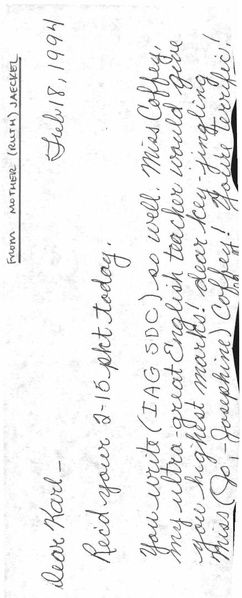 From MOTHER (RUTH) JAECKEL
Feb 18, 1994
Dear Karl—
Rec'd your 2-15 pkt today.
You write (IAG SDC) so well. Miss Coffey,
my ultra-great English teacher would give
you highest marks! dear key-jingling
Miss (Jo-Josephine) Coffey! You're terrific!